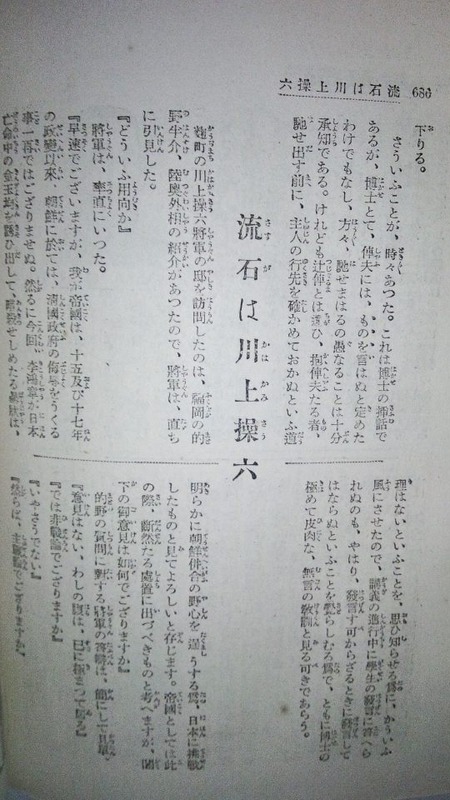 686
流石は川上操六
下りる。
さういふことが、時々あつた。これは博士の挿話で
あるが、博士とて、俥夫には、ものを言はぬと定めた
わけでもなし、方々、馳せまはるの愚なることは十分
承知である。けれども辻俥とは違ひ、抱俥夫たる者、
馳せ出す前に、主人の行先を確かめておかぬといふ道
理はないといふことを、思ひ知らせる爲に、かういふ
風にさせたので、講義の進行中に學生の發言に答へら
れぬのも、やはり、發言す可からざるときに發言して
はならぬといふことを知らしむる爲で、ともに博士の
極めて皮肉な、無言の敎訓と見る可きであらう。
流石は川上操六
麹町の川上操六將軍の邸を訪問したのは、福岡の的
野半介、陸奧外相の紹介があつたので、將軍は、直ち
に引見した。
『どういふ用向か』
將軍は、率直にいつた。
『早速でございますが、我が帝國は、十五及び十七年
の政變以來、朝鮮に於ては、淸國政府の侮辱をうくる
事一再ではございませぬ。然るに今回、李鴻章が日本
亡命中の金玉均を誘ひ出して、暗殺せしめたる
明らかに朝鮮併合の野心を逞うする爲、日本に挑戰
したものと見てよろしいと存じます。帝國としては此
の際、斷然たる處置に出づべきものと考へますが、閣
下の御意見は如何でございますか』
的野の質問に對する將軍の答辯は、簡にして
『意見はない、わしの腹は、已に極まつて居る』
『では非戰論でござりますか』
『いやさうでない』
『然らば、主戰論でござりますか、